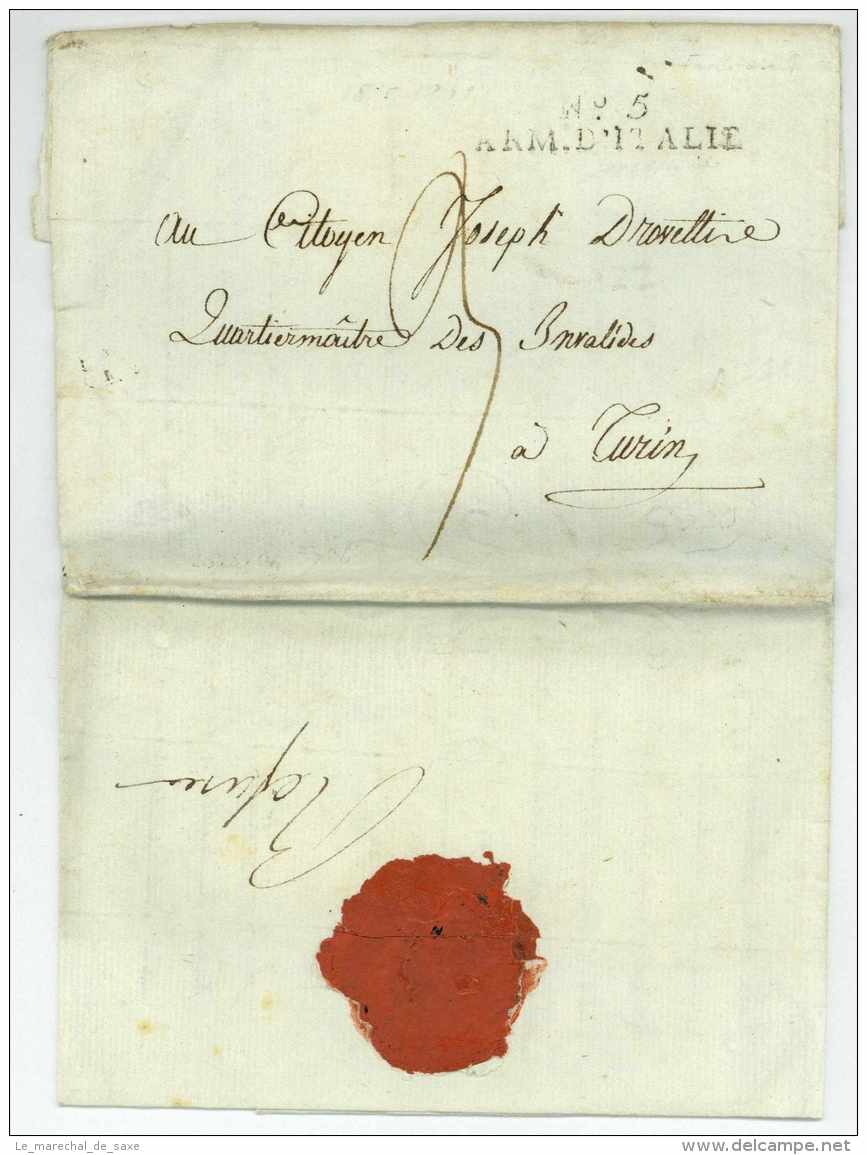 Nº 5
ARM. D'ITALIE
au Citoyen Joseph Drovettise
Quartiermaître Des Invalides
à Turin
Le_marechal_de_saxe
delcampe.net